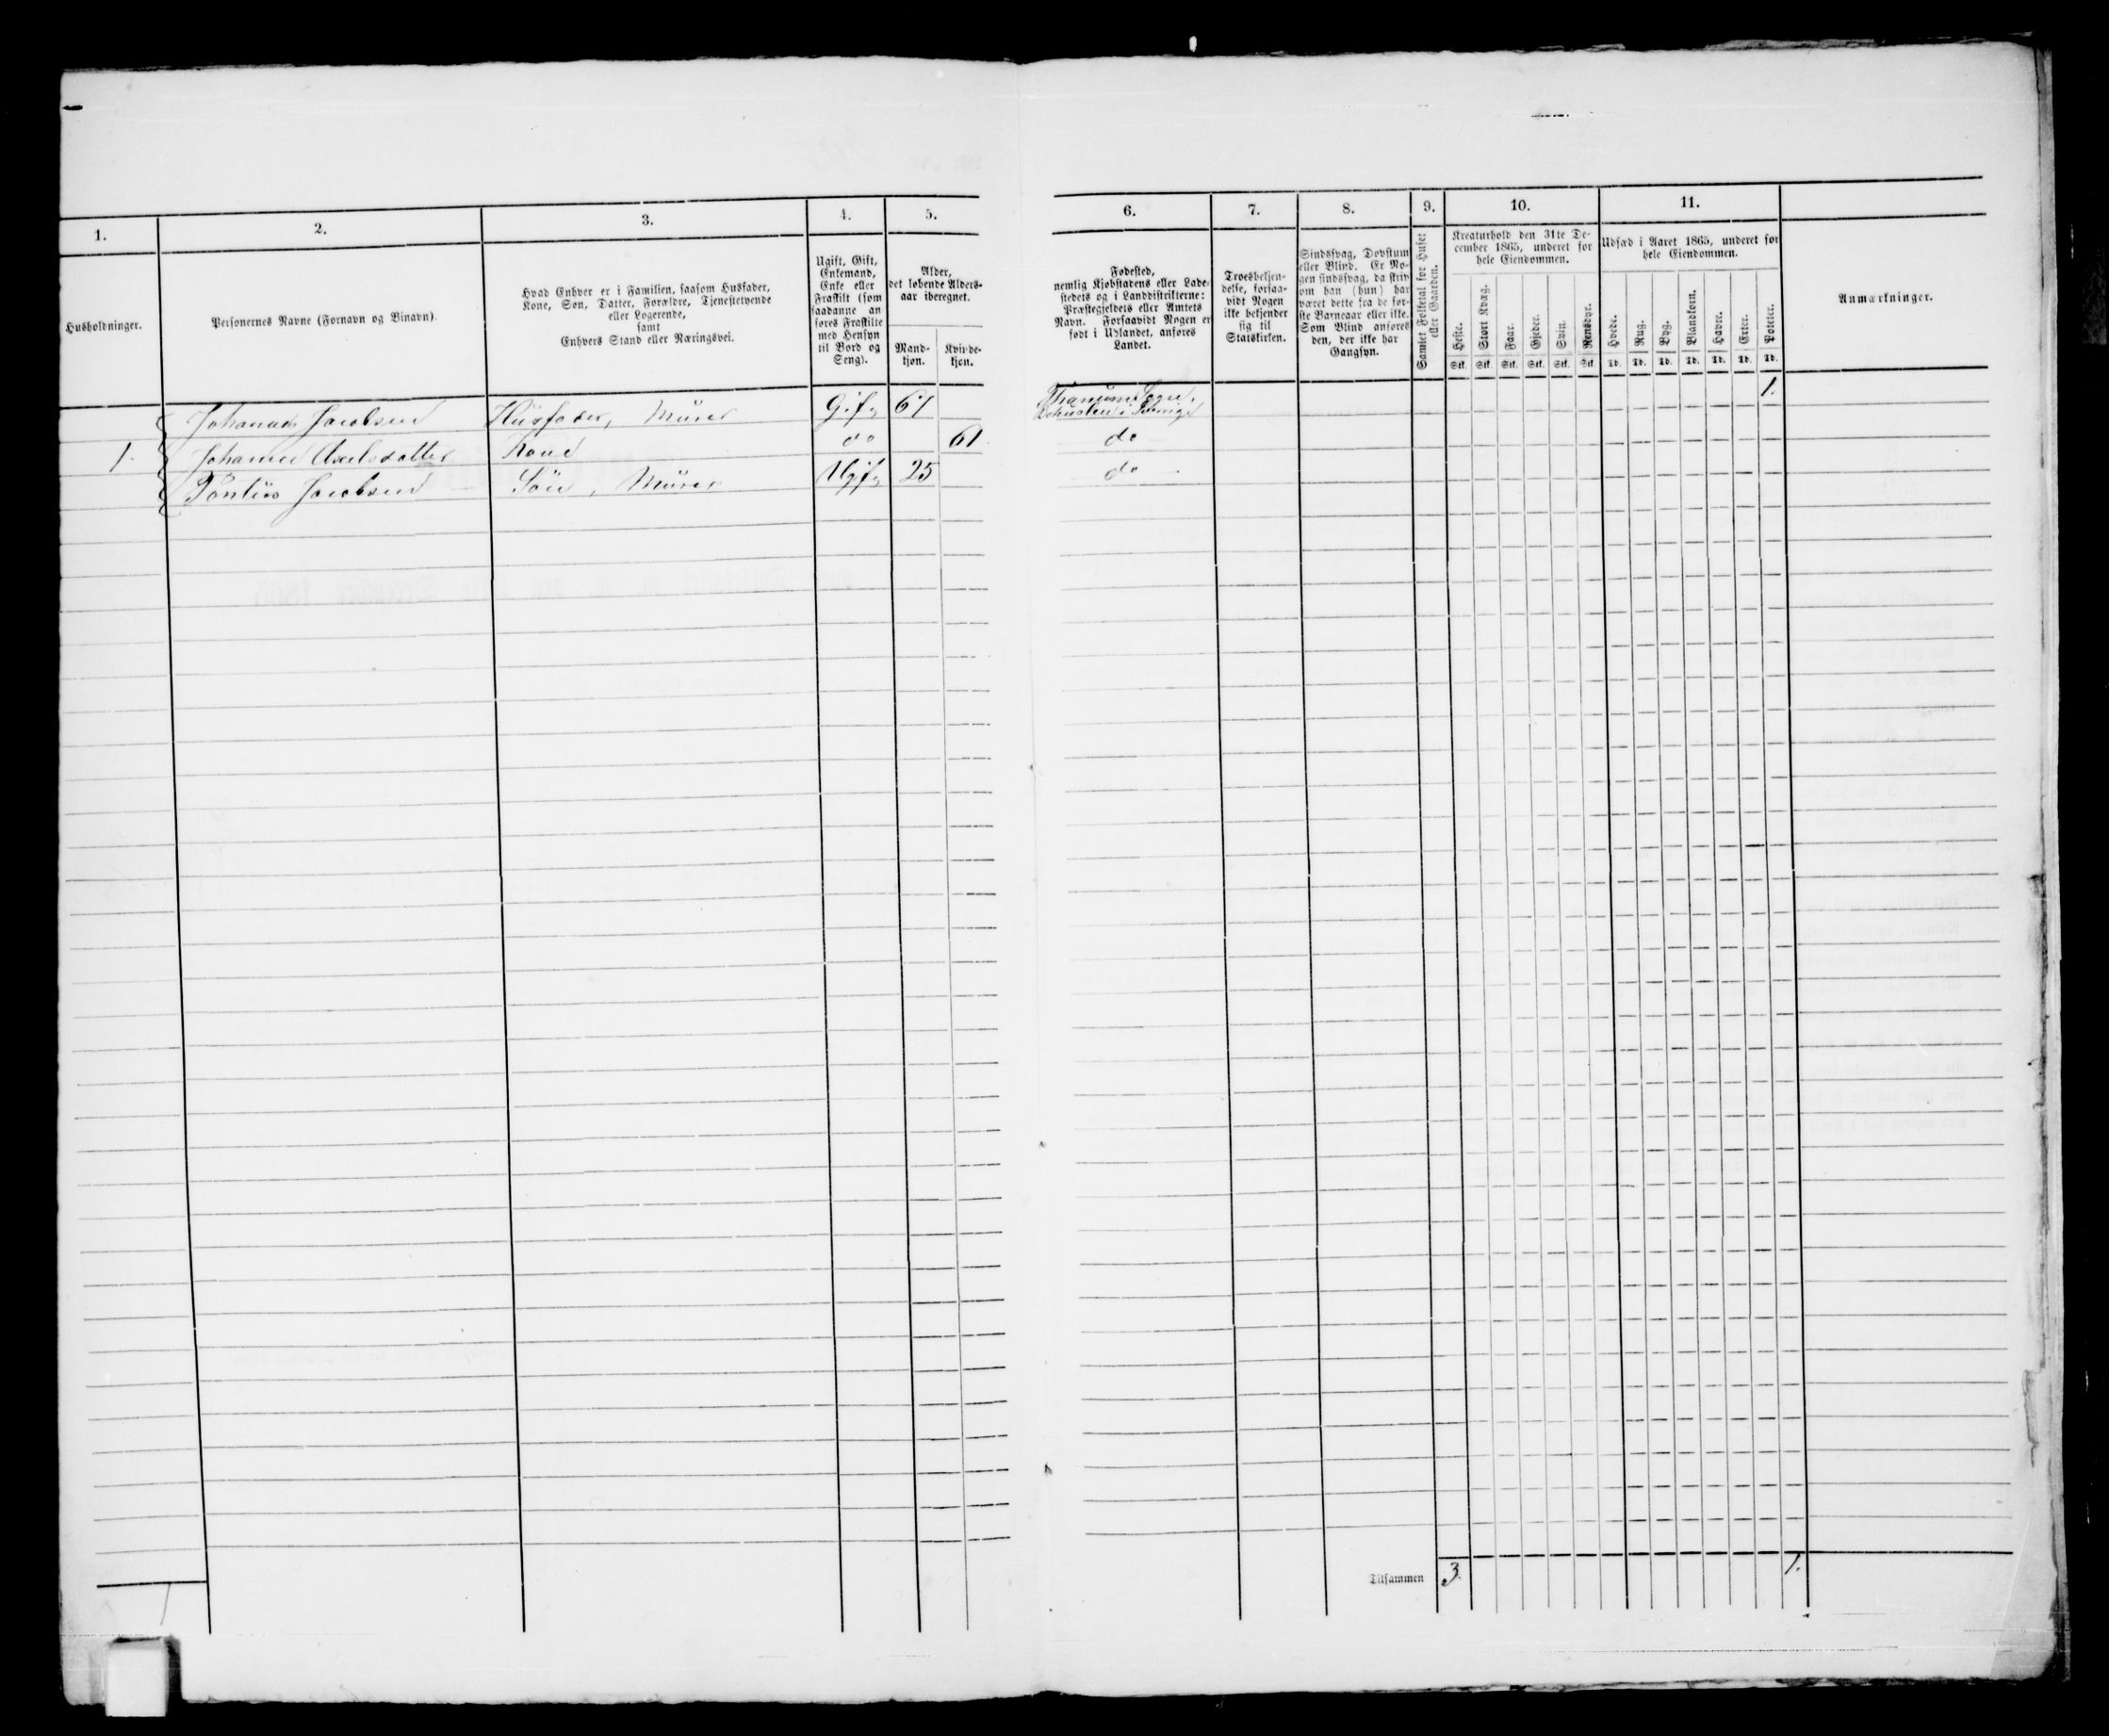 1.
2.
3.
4.
5.
Husholdninger.
Personernes Navne (Fornavn og Binavn).
Hvad Enhver er i Familien, saasom Husfader,
Kone, Søn, Datter, Forældre, Tjenestetyende
eller Logerende,
samt
Enhvers Stand eller Næringsvei.
Ugift, Gift,
Enkemand,
Enke eller
Fraskilt (som
saadanne an
føres Fraskilte
med Hensyn
til Bord og
Seng).
Alder,
det løbende Alders-
aar iberegnet.
Mand-
kjøn.
Kvinde-
kjøn.
Jacobsen Husfader, Murer Gift 67
1. Johanne Axelsdatter Kone do 61
Pontus Jacobsen Søn, Murer Ugift 25
1
6.
7.
8.
9.
10.
11.
Fødested,
nemlig Kjøbstadens eller Lade-
stedets og i Landdistrikterne:
Præstegjeldets eller Amtets
Navn. Forsaavidt Nogen er
født i Udlandet, anføres
Landet.
Troesbekjen-
delse, forsaa-
vidt Nogen
ikke bekjender
sig til
Statskirken.
Sindssvag, Døvstum
eller Blind. Er No-
gen sindssvag, da skriv
om han (hun) har
været dette fra de før-
ste Barneaar eller ikke.
Som Blind anføres
den, der ikke har
Gangsyn.
Samlet Folketal for Huset
eller Gaarden.
Kreaturhold den 31te De-
cember 1865, underet for
hele Eiendommen.
Heste.
Stort Kvæg.
Faar.
Gjeder.
Svin.
Rensdyr.
Stk. Stk. Stk. Stk. Stk. Stk.
Udsæd i Aaret 1865, underet for
hele Eiendommen.
Hvede.
Rug.
Byg.
Blandkorn.
Havre.
Erter.
Poteter.
Td. Td. Td. Td. Td. Td. Td.
Anmærkninger.
Thanum Sogn, 1.
i Sverige
do
do
Tilsammen 3. 1.